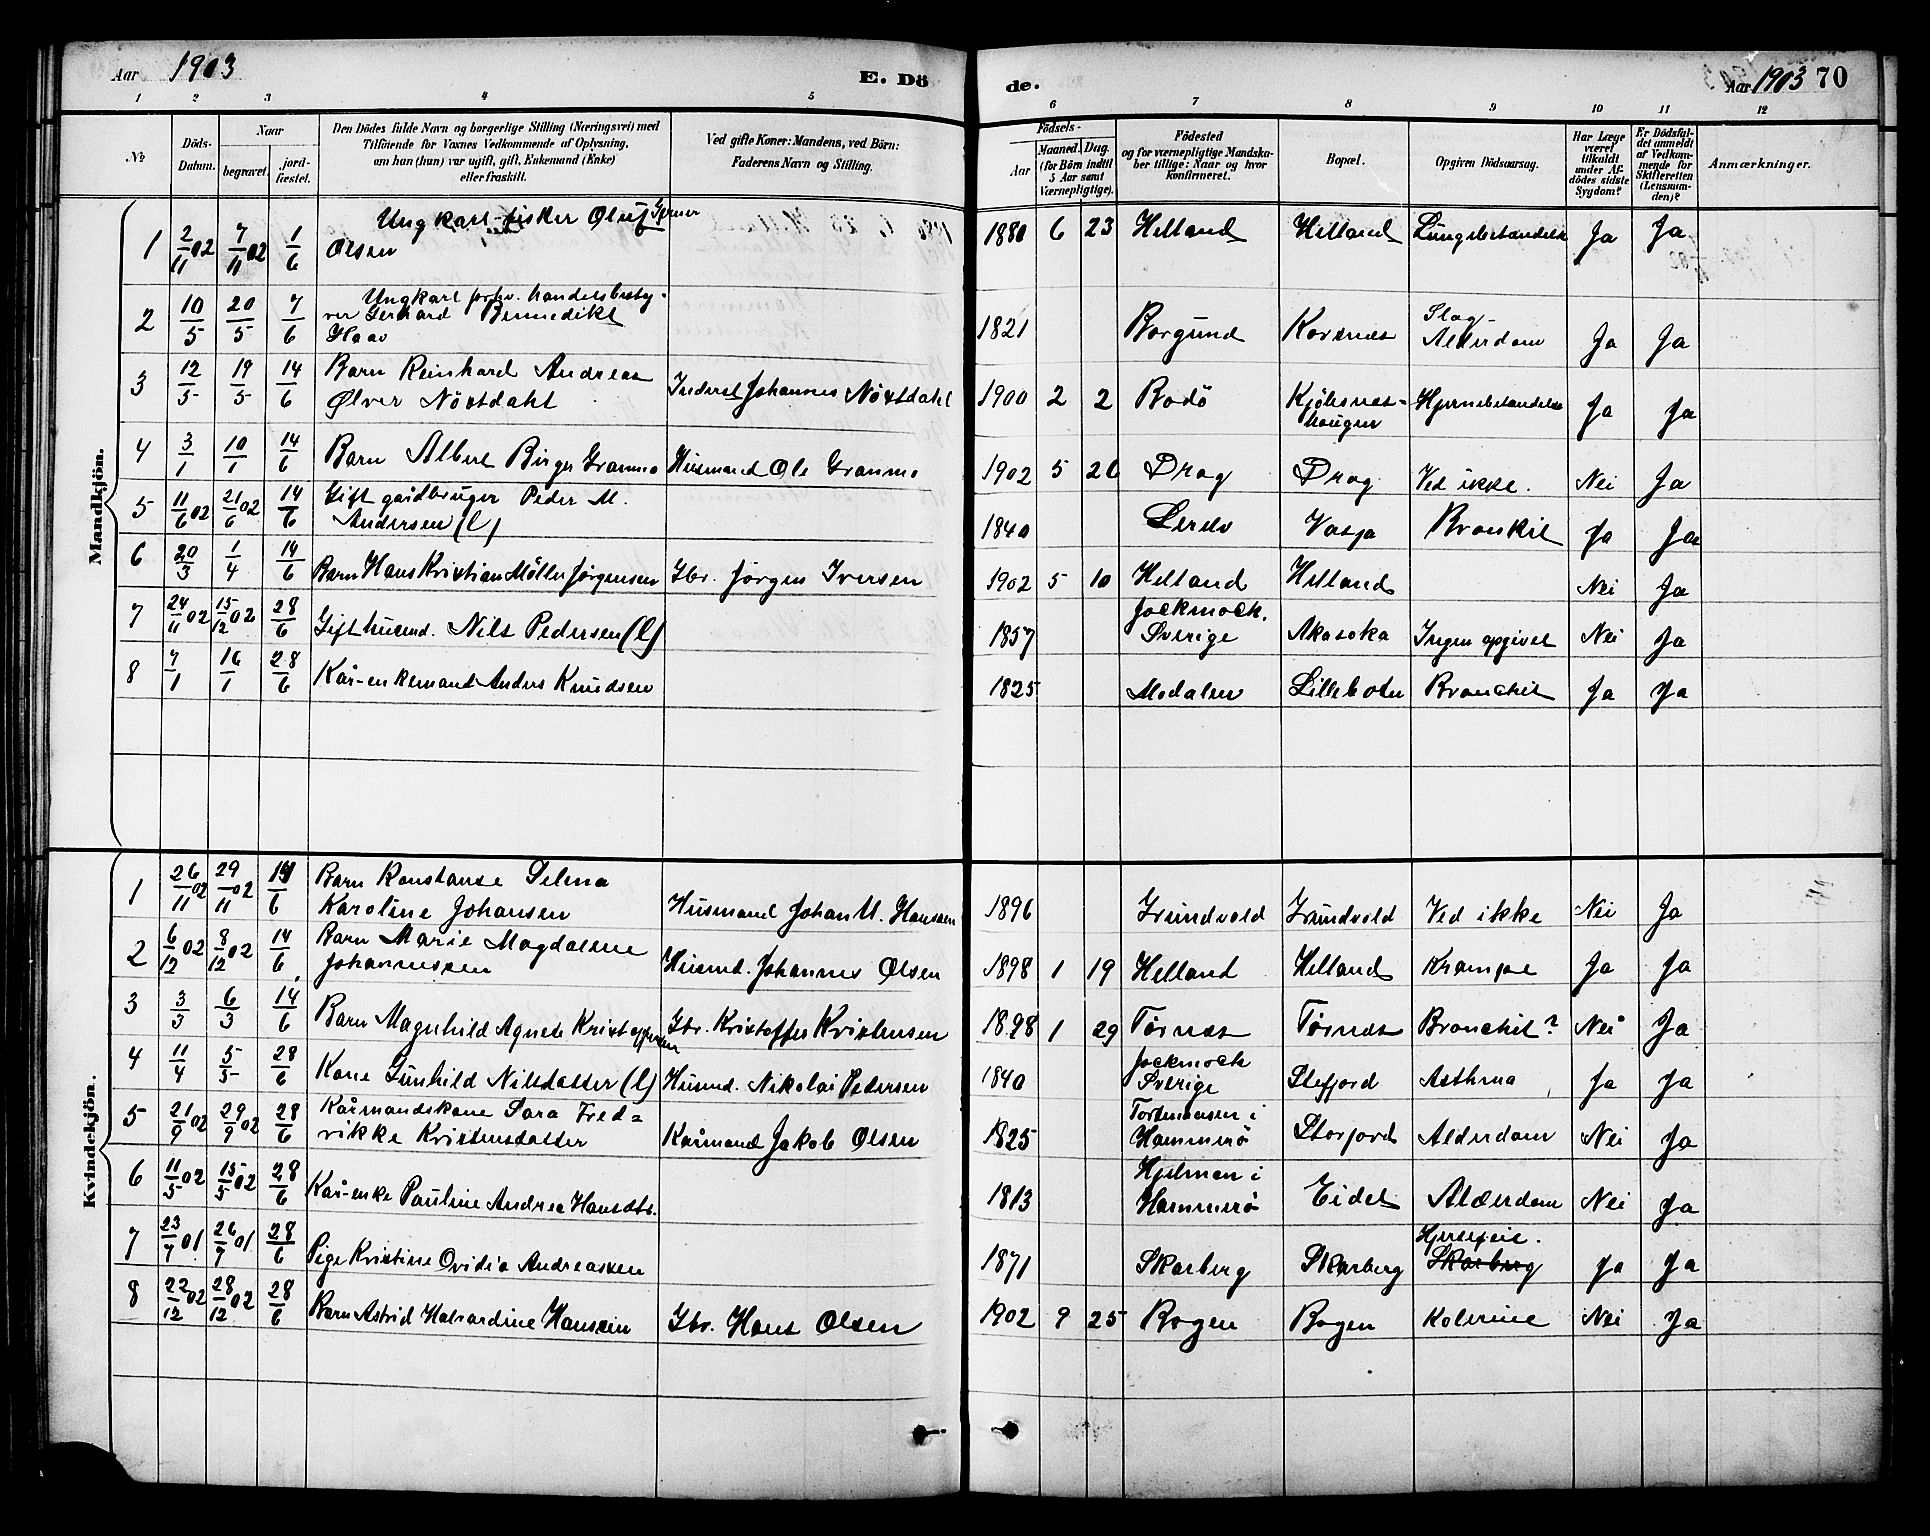 Aar 1903
E. Dö
de.
Aar 1903 70
1 2 3 4 5
6 7 8 9 10 11 12
No
Döds-Datum.
Naar
begravet.
jord-fæstet.
Den Dödes fulde Navn og borgerlige Stilling (Næringsvei) med
Tilföiende for Voxnes Vedkommende af Oplysning,
om han (hun) var ugift, gift, Enkemand (Enke)
eller fraskilt.
Ved gifte Koner: Mandens, ved Börn:
Faderens Navn og Stilling.
Födsels-
Aar
Maaned. Dag.
(for Börn indtil
5 Aar samt
Værnepligtige).
Födested
og for værnepligtige Mandska-
ber tillige: Naar og hvor
konfirmeret.
Bopæl.
Opgiven Dödsaarsag.
Har Læge
været
tilkaldt
under Af-
dödes sidste
Sygdom?
Er Dödsfal-
det anmeldt
af Vedkom-
mende for
Skifteretten
(Lensman-
den)?
Anmærkninger.
Mandkjön.
1 2/11 02 7/11 02 1/6 Ungkarl fisker Oluf
Olsen 1880 6 23 Helland Helland Lungebetændelse Ja Ja
2 10/5 20/5 7/6 Ungkarl forhv. handelsbesty-
rer Gerhard Bennedikt
Haav 1821 Borgund Korsnes Slag-
Alderdom Ja Ja
3 12/5 19/5 14/6 Barn Reinhard Andreas
Ølver Nöstdahl Inderst Johannes Nöstdahl 1900 2 2 Bodö Kjöbsnes-
haugen Hjernebetændelse Ja Ja
4 3/1 10/1 14/6 Barn Albert Birger Granmo Husmand Ole Granmo 1902 5 26 Drag Drag Ved ikke. Nei Ja
5 11/6 02 21/6 02 14/6 Gift gaardbruger Peder M.
Andersen (l) 1840 Vasja Bronkit Ja Ja
6 20/3 1/4 14/6 Barn Hans Kristian Möller Jørgensen Gbr. Jørgen Iversen 1902 5 10 Helland Helland Nei Ja
7 24/11 02 15/12 02 28/6 Gift husmd. Nils Pedersen (l) 1857 Jockmock.
Sverige Akasoka Ingen opgivet Nei Ja
8 7/1 16/1 28/6 Kår-enkemand Anders Knudsen 1825 Modalen Lillebotn Bronchit Ja Ja
Kvindekjön.
1 26/11 02 29/11 02 14/6 Barn Konstanse Selma
Karoline Johansen Husmand Johan U. Hansen 1896 Grundvold Grundvold Ved ikke Nei Ja
2 6/12 02 8/12 02 14/6 Barn Marie Magdalene
Johannessen Husmd. Johannes Olsen 1898 1 19 Helland Helland Krampe Ja Ja
3 3/3 6/3 14/6 Barn Magnhild Agnete Kristoffersen Gbr. Kristoffer Kristensen 1898 1 29 Tørnes Tørnes Bronchit? Nei Ja
4 11/4 5/5 28/6 Kone Gunhild Nilsdatter (l) Husmd. Nikolai Pedersen 1840 Jockmock
Sverige Stefjord Asthma Ja Ja
5 21/9 02 29/9 02 28/6 Kårmandskone Sara Fred=
rikke Kristensdatter Kårmand Jakob Olsen 1825 i
Hammerö Storfjord Alderdom Nei Ja
6 11/5 02 15/5 02 28/6 Kår-enke Pauline Andrea Hansdtr. 1813 Hjelman i
Hammerö Eidet Alderdom Nei Ja
7 23/7 01 26/7 01 28/6 Pige Kristine Ovidia Andreassen 1871 Skarberg Skarberg Hjertefeil.
Skarberg Ja Ja
8 22/12 02 28/12 02 28/6 Barn Astrid Halvardine Hanssen Gbr. Hans Olsen 1902 9 25 Bogen Bogen Kolerine Nei Ja